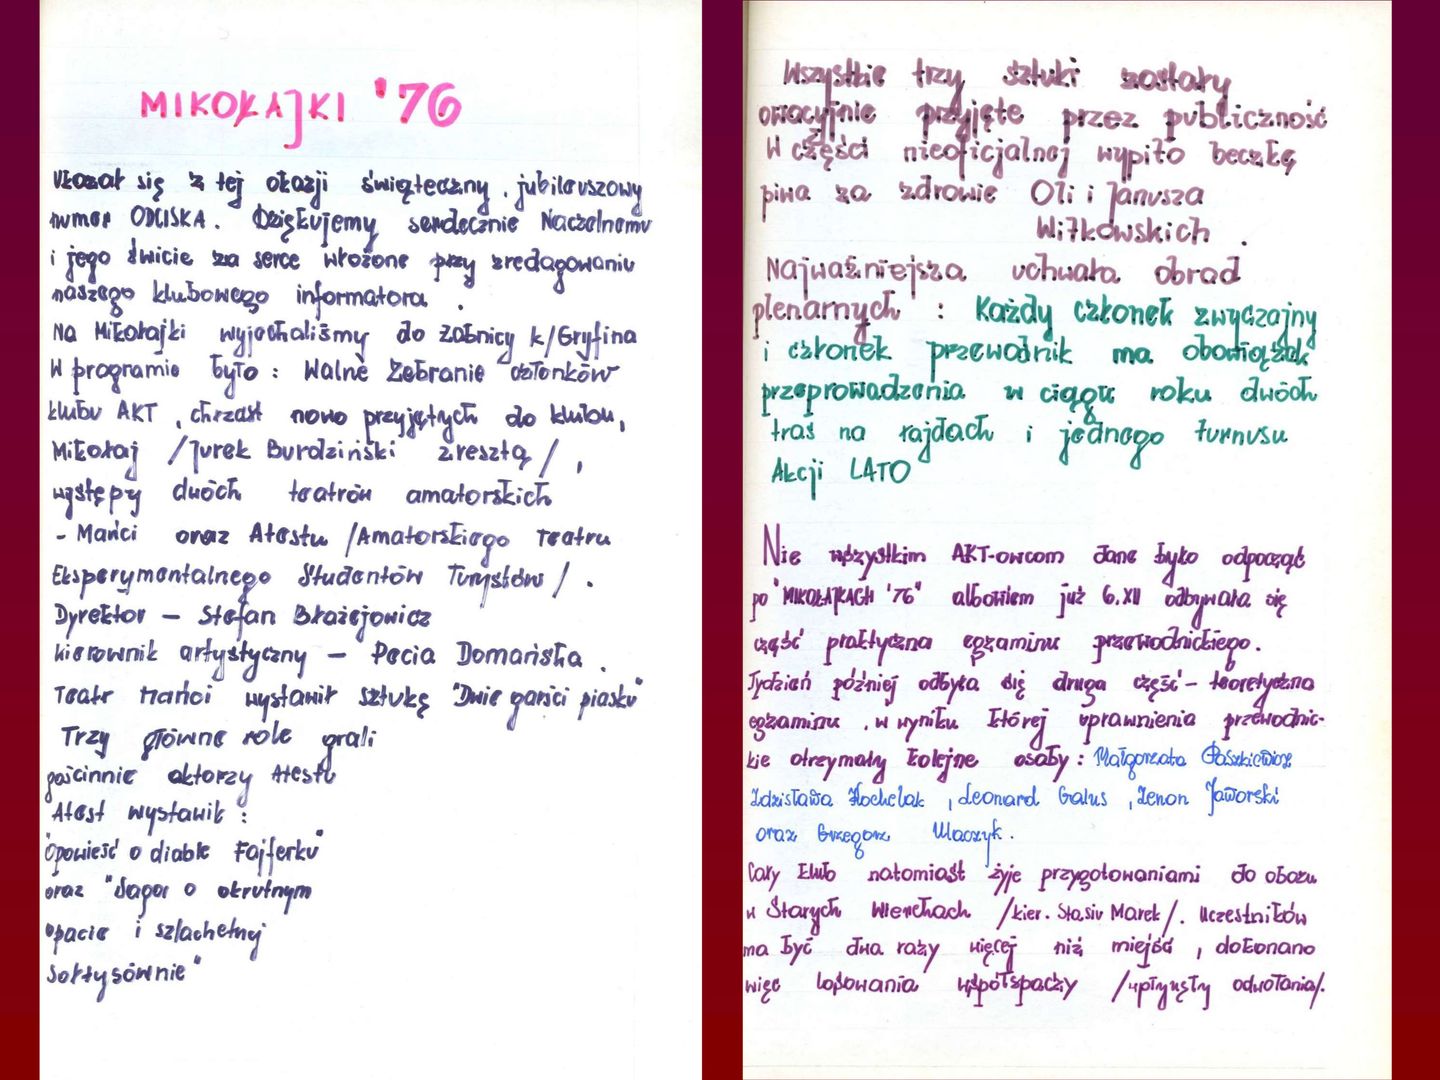 MIKOŁAJKI '76
Ukazał się z tej okazji świąteczny, jubileuszowy
numer ODCISKA. Dziękujemy serdecznie Naczelnemu
i jego świcie za serce włożone przy zredagowaniu
naszego klubowego informatora.
Na Mikołajki wyjechaliśmy do Żabnicy k/Gryfina
W programie było: Walne Zebranie członków
klubu AKT, chrzest nowo przyjętych do klubu,
Mikołaj /Jurek Burdziński zresztą/,
występy dwóch teatrów amatorskich
- Mańci oraz Atestu /Amatorskiego Teatru
Eksperymentalnego Studentów Turystów/.
Dyrektor – Stefan Błażejowicz
kierownik artystyczny – Pecia Domańska.
Teatr Mańci wystawił sztukę "Dwie garści piasku"
Trzy główne role grali
gościnnie aktorzy Atestu
Atest wystawił:
"Opowieść o diable Fajferku"
oraz "Saga o okrutnym
opacie i szlachetnej
sołtysównie"
Wszystkie trzy sztuki zostały
owacyjnie przyjęte przez publiczność
W części nieoficjalnej wypito beczkę
piwa za zdrowie Oli i Janusza
Witkowskich.
Najważniejsza uchwała obrad
plenarnych: Każdy członek zwyczajny
i członek przewodnik ma obowiązek
przeprowadzenia w ciągu roku dwóch
tras na rajdach i jednego turnusu
Akcji LATO
Nie wszystkim AKT-owcom dane było odpocząć
po "MIKOŁAJKACH '76" albowiem już 6.XII odbywała się
część praktyczna egzaminu przewodnickiego.
Tydzień później odbyła się druga część – teoretyczna
egzaminu, w wyniku której uprawnienia przewodnic-
kie otrzymały kolejne osoby: Małgorzata Paszkiewicz
Zdzisława Kochelak, Leonard Galus, Zenon Jaworski
oraz Grzegorz Ulaczyk.
Cały klub natomiast żyje przygotowaniami do obozu
w Starych Wierchach /kier. Stasiu Marek/. Uczestników
ma być dwa razy więcej niż miejsc, dokonano
więc losowania współspaczy /upłynęły odwołania/.